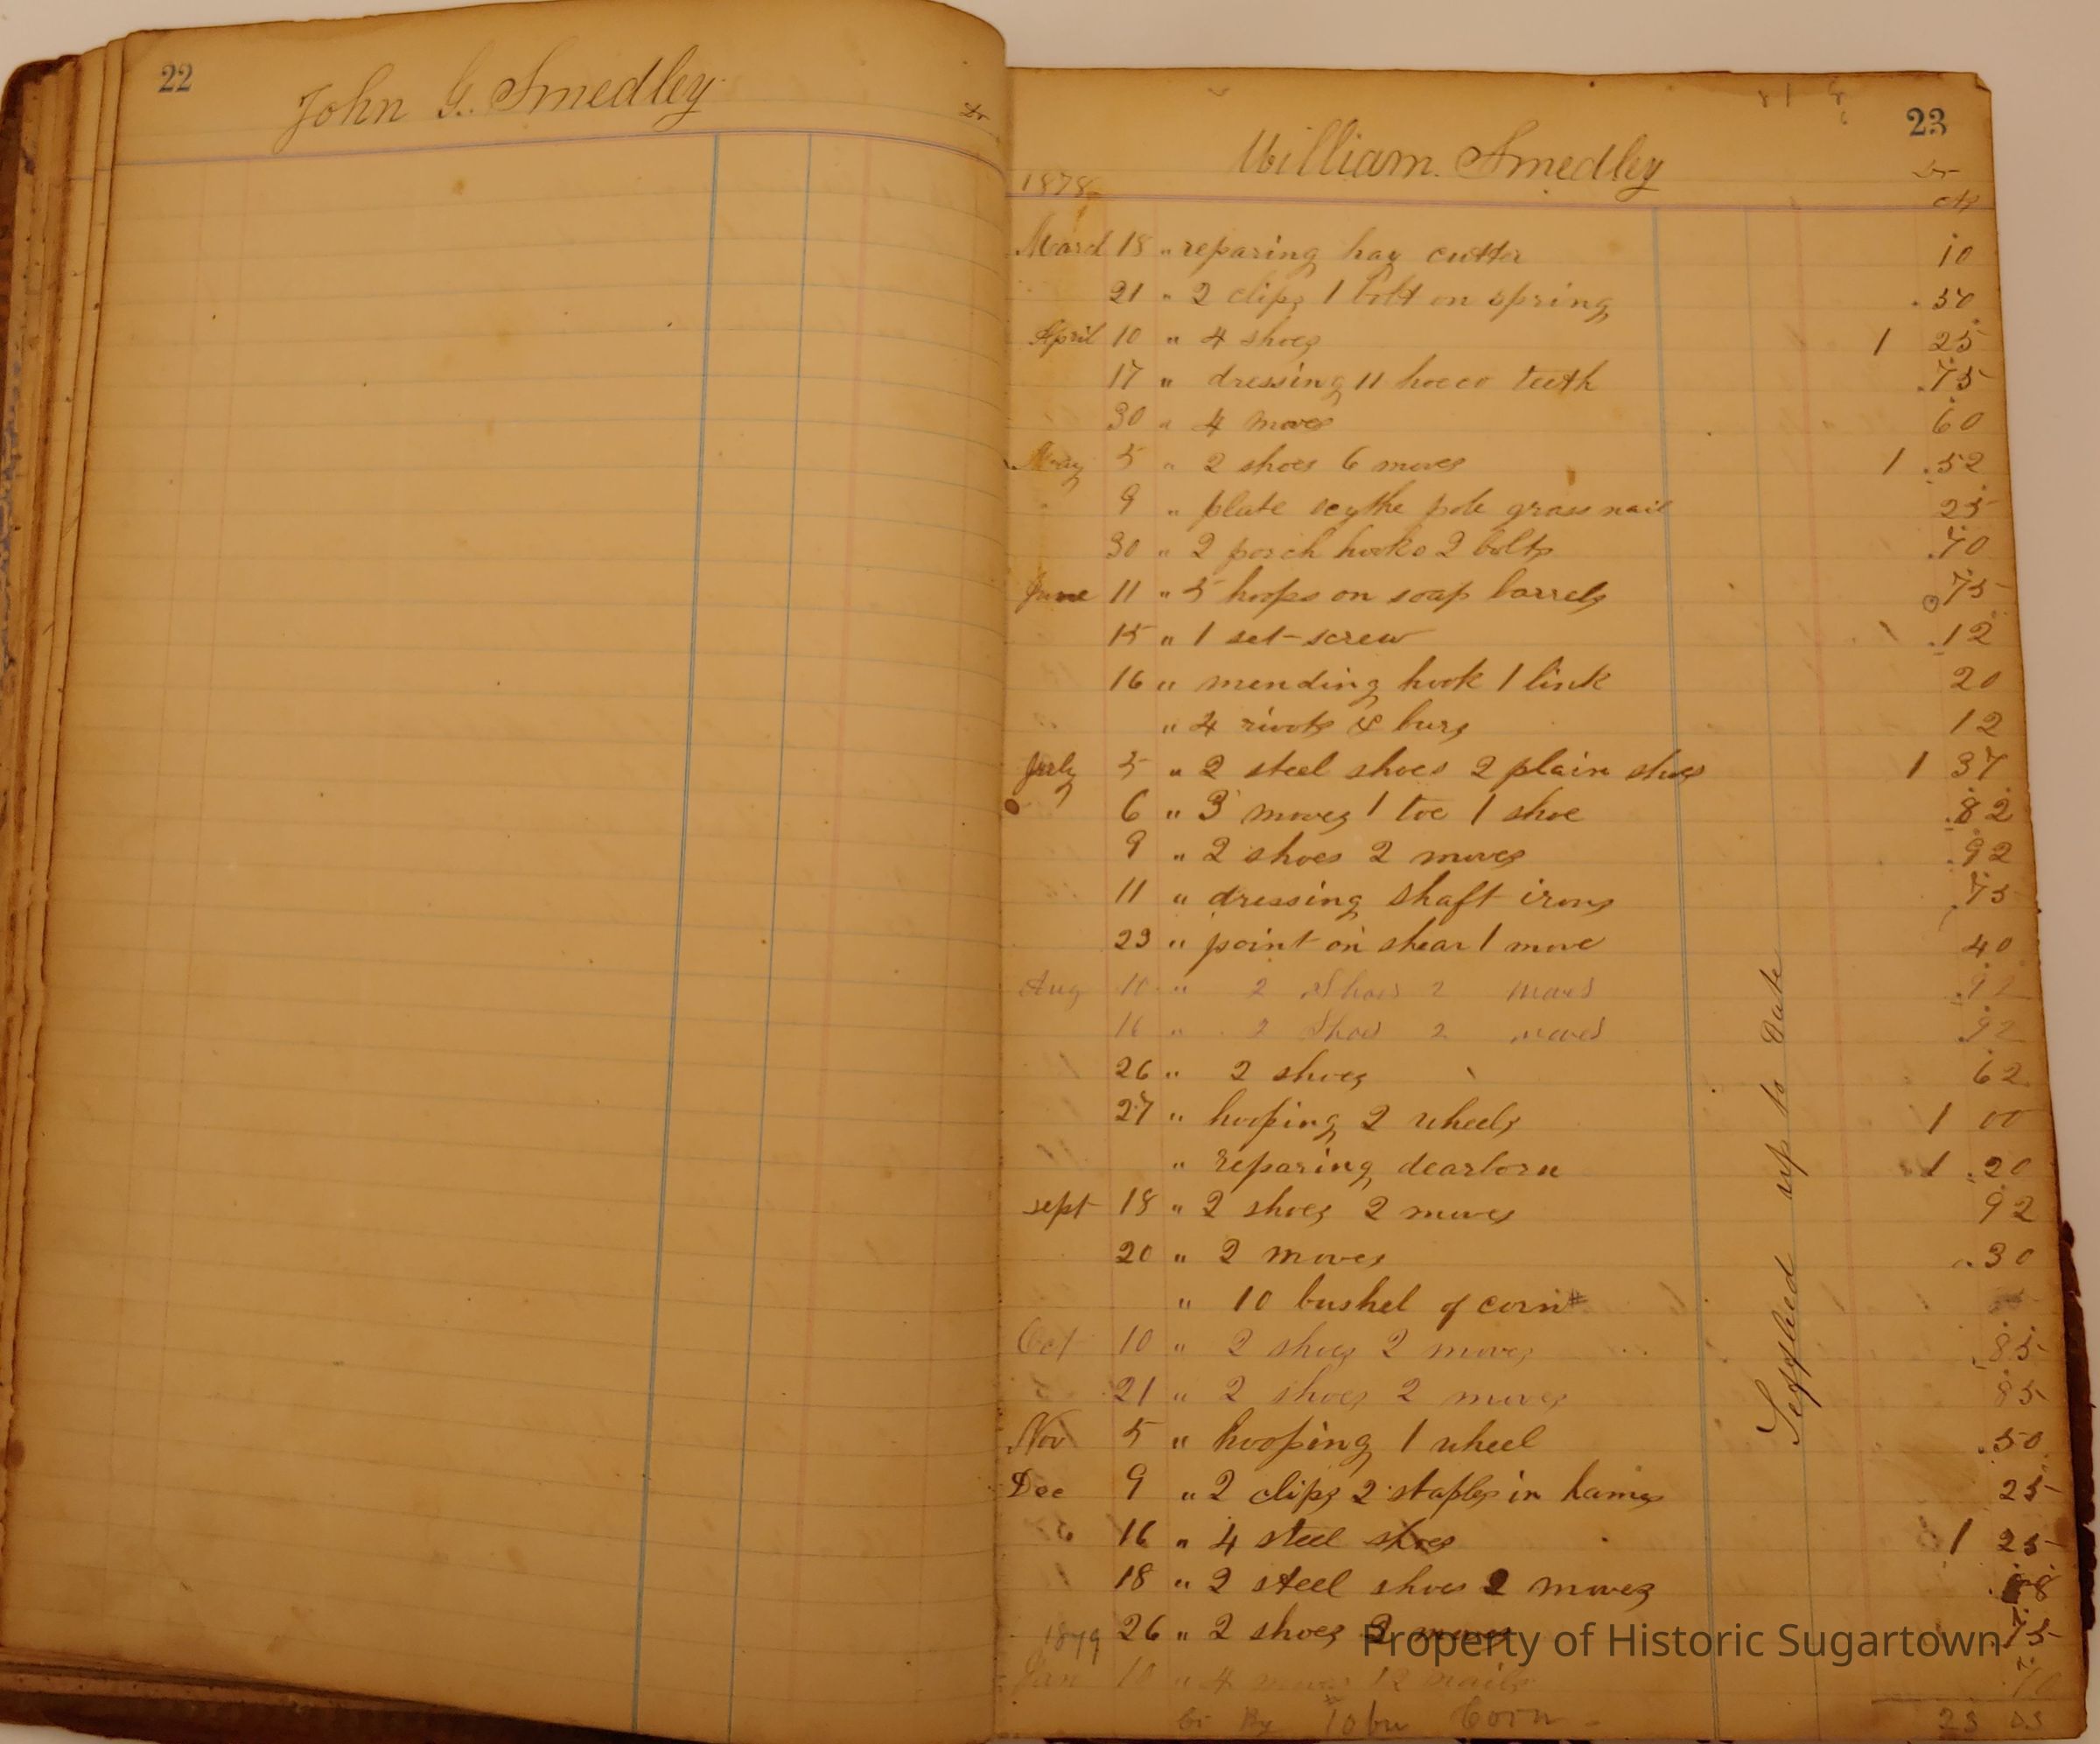 22
John G. Smedley
Dr
23
William. Smedley
Dr
1878
cts
March 18 " reparing hay cutter 10
21 " 2 clips 1 bolt on spring .50
April 10 " 4 shoes 1 25
17 " dressing 11 hoeco teeth .75
30 " 4 moves 60
May 5 " 2 shoes 6 moves 1 .52
9 " plate scythe pole grass nail 25
30 " 2 porch hooks 2 bolts .70
June 11 " 5 hoops on soap barrels 75
15 " 1 set-screw .12
16 " mending hook 1 link 20
" 4 rivots & burs 12
July 5 " 2 steel shoes 2 plain shoes 1 37
6 " 3 moves 1 toe 1 shoe .82
9 " 2 shoes 2 moves .92
11 " dressing shaft irons .75
23 " point on shear 1 move 40
Aug 10 " 2 Shoes 2 moves .92
16 " 2 Shoes 2 moves .92
26 " 2 shoes 62
27 " hooping 2 wheels 1 00
" reparing dearborn 1 .20
sept 18 " 2 shoes 2 moves 92
20 " 2 moves .30
" 10 bushel of corn #
Oct 10 " 2 shoes 2 moves .85
21 " 2 shoes 2 moves 85
Nov 5 " hooping 1 wheel .50
Dec 9 " 2 clips 2 staples in hames 25
16 " 4 steel shoes 1 25
18 " 2 steel shoes 2 moves
26 " 2 shoes 2 moves .75
1879
Jan 10 " 4 moves 12 nails .70
Cr By 10 bu Corn
Settled up to date
Property of Historic Sugartown